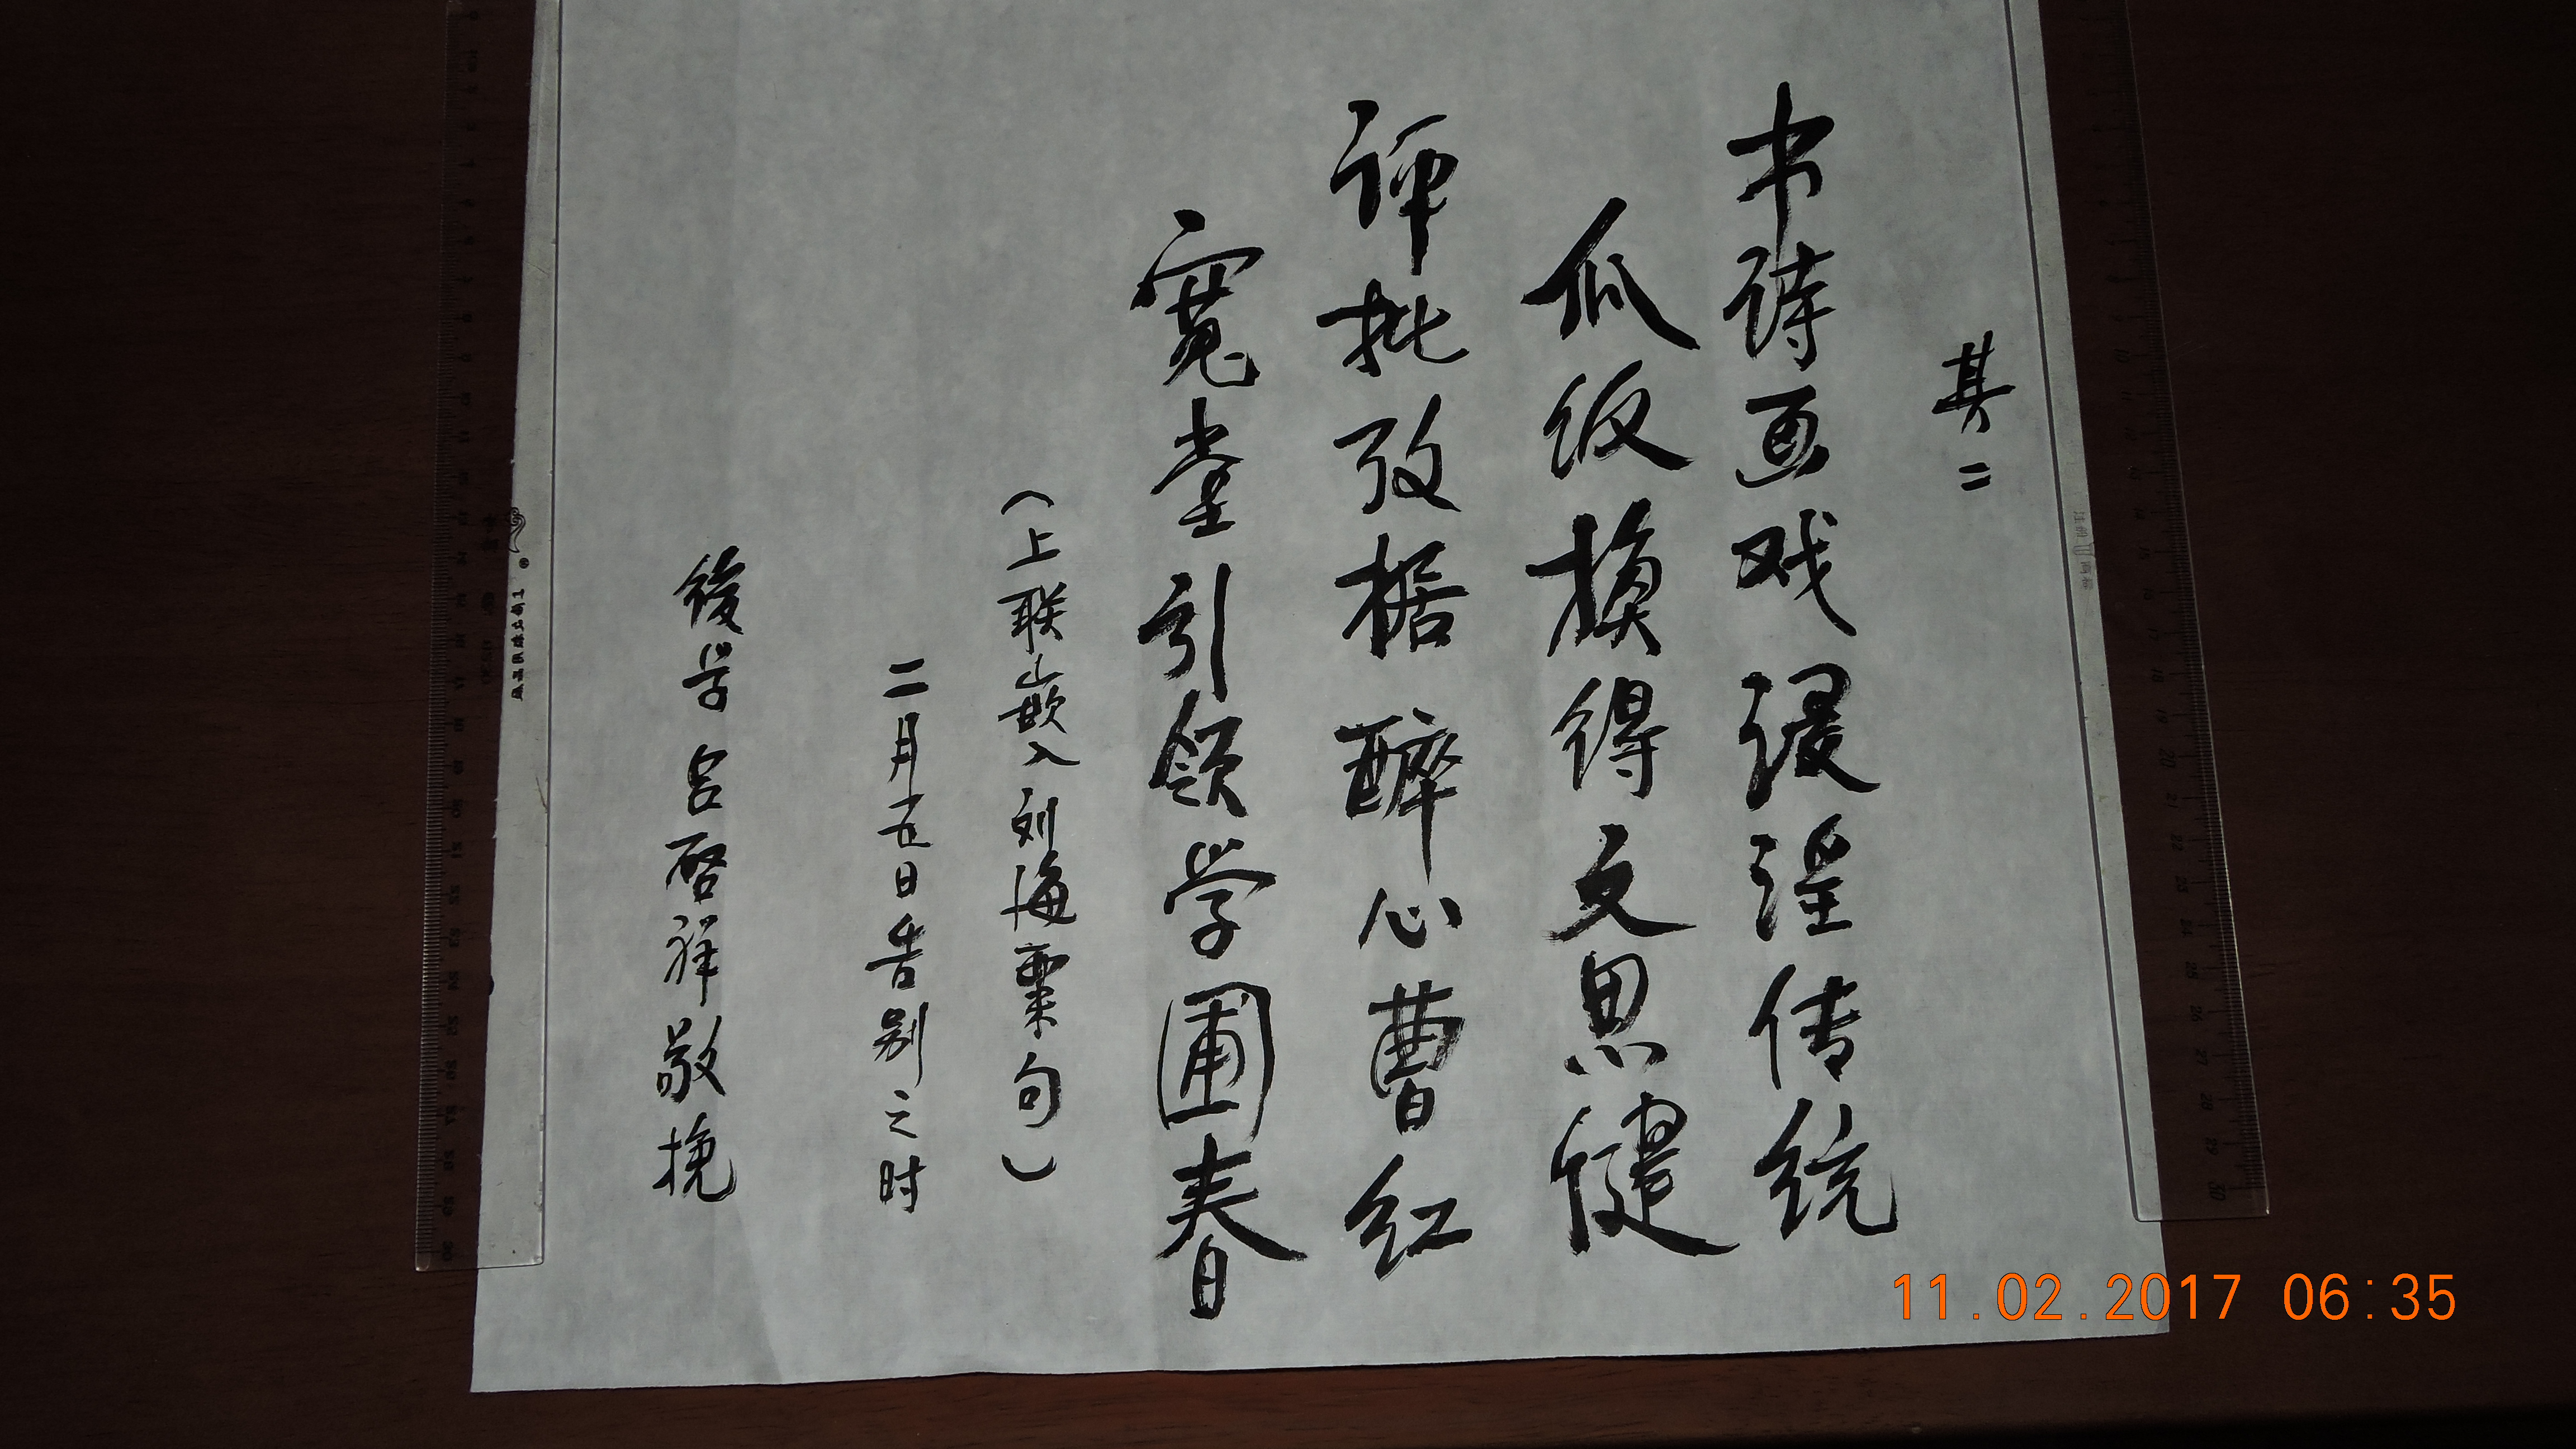 其二
书诗画戏浸淫传统
瓜饭换得文思健
评批考据醉心曹红
宽堂引领学圃春
（上联嵌入刘海粟句）
二月五日告别之时
后学吕启祥敬挽
11.02.2017 06:35